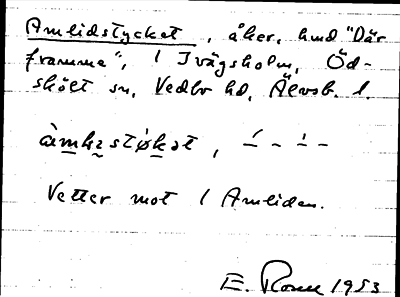 Amlidstycket, åker, hmd "Där
framme", 1 Ivägsholm, Öd-
skölt sn, Vedbo hd, Älvsb. l.
Vetter mot 1 Amliden.
E. Rosm 1953